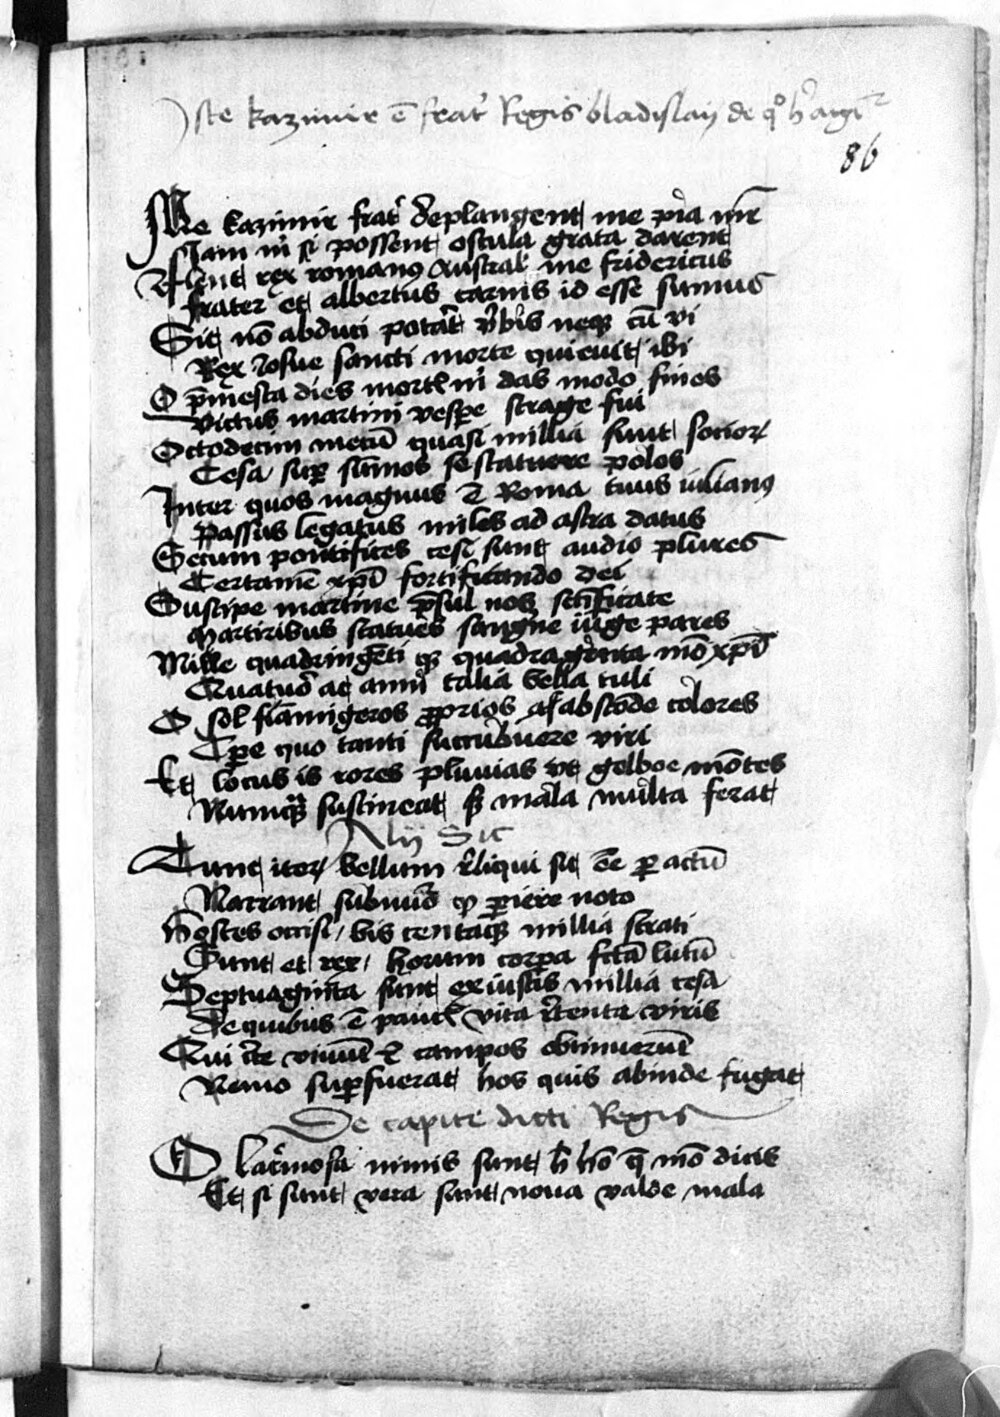 Iste kazimir ē frat' Regis bladislaij de qͦ h' agiꝰ
86
Me kazimir frat' deplangent me pia mr̄
Iam m̄ si possent oscula grata darent
Flent rex romanꝰ Austral' me fridericus
frater et albertus carnis id esse sumus
Sic nō abduci potāt v'bis neqꝫ cū vi
Rex Josue sancti morte quieuit ibi
O p̄mesta dies mort' m̄ das modo fines
victus martini vespe strage fui
Octodecim mecū quasi millia sunt socioꝝ
Cesa sup sūmos se statuere polos
Inter quos magnus ē Roma tuus iulianꝰ
Passus legatus miles ad astra datus
Secum pontifices cesi sunt audio plures
Certamē xp̄i fortificando dei
Suscipe martine p̄sul nos sc̄ificate
Martiribus statuēs sangne iuge pares
Mille quadringēti qꝫ quadraginta mō xp̄i
Quatuor ac anni talia bella tuli
O sol flāmigeros ꝓprios abscōde colores
Tpe quo tanti succubuere viri
Et locus is rores pluuias vt gelboe mōtes
Numqꝫ sustineat sꝫ mala multa ferat
Alij Sic
Tunc iteꝝ bellum reliqui sic ēē ꝑactū
Narrant subiuād qͥ ꝑiere noto
Hostes occisi / bis centaqꝫ millia strati
Sunt et rex / horum corpa fctā lutū
Septuaginta sunt ex iustis millia cesa
De quibus ē pauc' vita retenta viris
Qui cte viuūt et campos obtinuerūt
Nemo supfuerat hos quis abinde fugat
De capite dicti Regis
O lac'mosa nimis sunt h̄ hō q̄ mō dicis
Et si sunt vera sunt noua valde mala